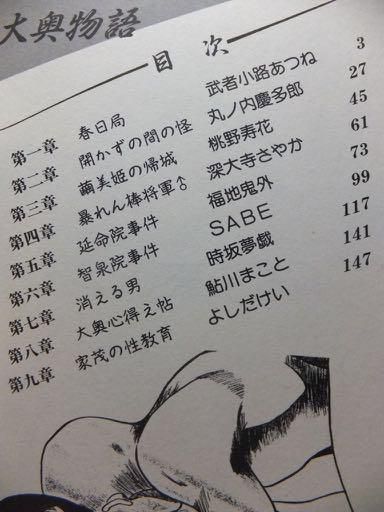 大奥物語
目次
第一章 春日局 武者小路あつね 3
第二章 開かずの間の怪 丸ノ内慶多郎 27
第三章 繭美姫の帰城 桃野寿花 45
第四章 暴れん棒将軍♂ 深大寺さやか 61
第五章 延命院事件 福地鬼外 73
第六章 智泉院事件 SABE 99
第七章 消える男 時坂夢戯 117
第八章 大奥心得え帖 鮎川まこと 141
第九章 家茂の性教育 よしだけい 147